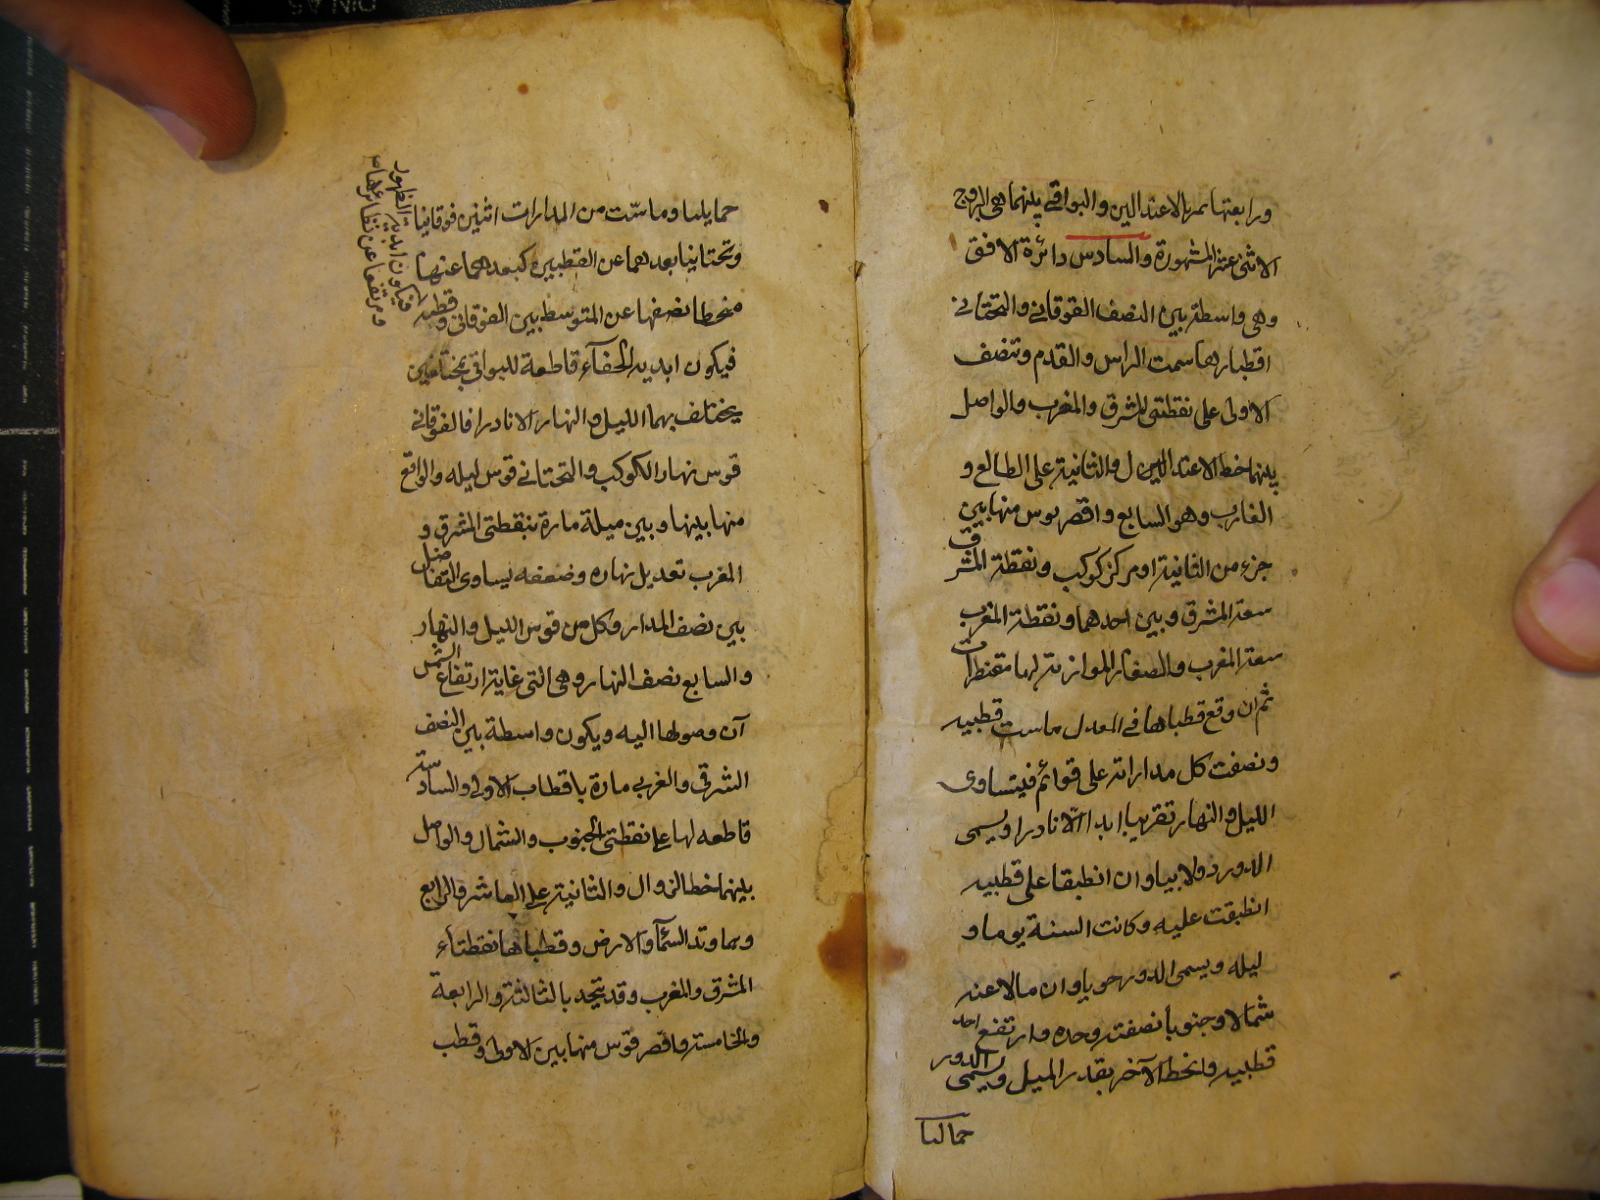 ورابعتها تمر بالاعتدالين والبواقي بينهما هي البروج
الاثنى عشر المشهورة والسادس دائرة الافق
وهي واسطة بين النصف الفوقاني والتحتاني
اقطبارها سمت الراس والقدم وتنصف
الاولى على نقطتي المشرق والمغرب والواصل
بينهما خط الاعتدال والثانية على الطالع و
الغارب وهو السابع واقصر قوس منها بين
جزء من الثانية او مركز كوكب ونقطة المشرق
سعة المشرق وبين احدهما ونقطة المغرب
سعة المغرب والصغار الموازية لها مقنطرات
ثم ان وقع قطباها في المعدل ماست قطبيه
ونصفت كل مداراته على قوائم فيتساوى
الليل والنهار تقريبا ابدا الا نادرا ويسمى
الدور دولابيا وان انطبقا على قطبيه
انطبقت عليه وكانت السنة يوما و
ليله ويسمى الدور رحويا وان مالا عنه
شمالا وجنوبا نصفته وحده وارتفع احد
قطبيه وانحط الآخر بقدر الميل ويسمى الدور
حمائليا
حمايليا وماست من المدارات اثنين فوقانيا
وتحتانيا بعدهما عن القطبين كبعدهما عنها
منحطا نصفها عن المتوسط بين الفوقاني وقطبه
فيكون ابدية الظهور
ومرتفعا عن نظائرها
فيكون ابدية الخفآء قاطعة للبواقي بمختلفين
يختلف بهما الليل والنهار الا نادرا فالفوقاني
قوس نهار الكوكب والتحتاني قوس ليله والواقع
منها بينها وبين ميلة مارة بنقطتي المشرق و
المغرب تعديل نهاره وضعفه يساوي التفاضل
بين نصف المدار وكل من قوس الليل والنهار
والسابع نصف النهار وهي التي غاية ارتفاع الشمس
آن وصولها اليه ويكون واسطة بين النصف
الشرقي والغربي مارة باقطاب الاولى والسادسة
قاطعه لها على نقطتي الجنوب والشمال والواصل
بينهما خط الزوال والثانية على العاشر والرابع
وهما وتد السمآء والارض وقطباها نقطتاء
المشرق والمغرب وقد يتحد بالثالثة والرابعة
والخامسة واقصر قوس منها بين الاولى وقطب